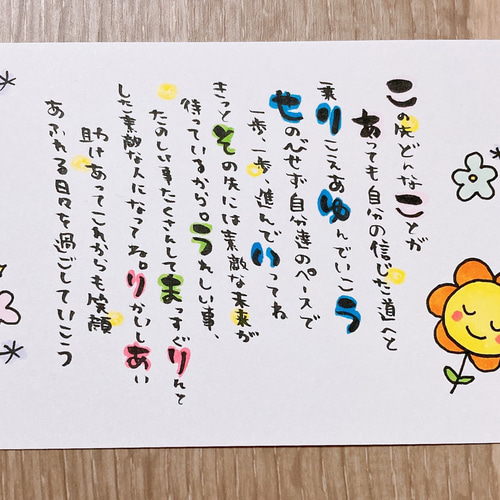 この先どんなことが
あっても自分の信じた道へと
乗りこえあゆんでいこう
せのびせず自分達のペースで
一歩一歩進んでいってね
きっとその先には素敵な未来が
待っているから。うれしい事、
たのしい事たくさんしてまっすぐりんと
した素敵な人になってね。りかいしあい
助けあってこれからも笑顔
あふれる日々を過ごしていこう